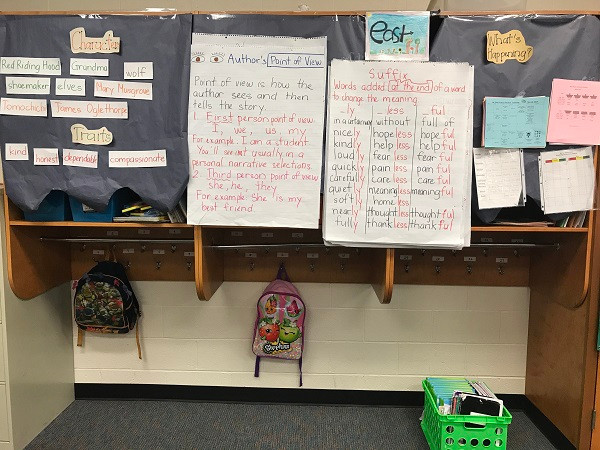 Characters
Red Riding Hood
Grandma
wolf
shoemaker
elves
Mary Musgrove
Tomochichi
James Oglethorpe
Traits
kind
honest
dependable
compassionate
Author's Point of View
Point of view is how the
author sees and then
tells the story.
1. First person point of view
I, we, us, my
For example: I am a student.
You'll see this usually in a
personal narrative selections.
2. Third person point of view
she, he, they
For example: She is my
best friend.
east
Suffix
Words added at the end of a word
to change the meaning.
ly less ful
in a certain way without full of
nicely hopeless hopeful
kindly helpless helpful
loudly fearless fearful
quickly painless painful
carefully careless careful
quietly meaningless meaningful
softly homeless
nearly thoughtless thoughtful
fully thankless thankful
What's
Happening?
SHOPKINS